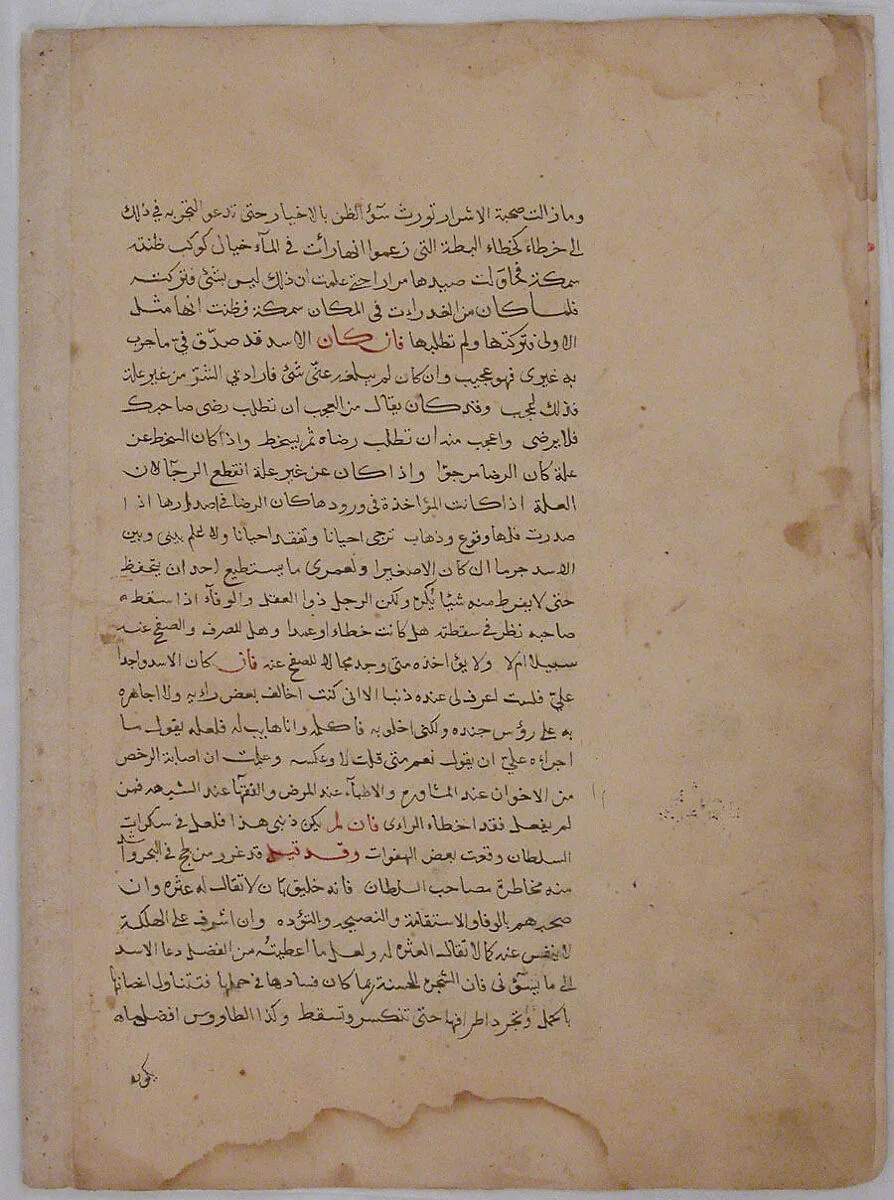 وما زالت صحبة الاشرار تورث سوٓ الظن بالاخيار حتى تدعو التجربه في ذلك
الى خرطاء كخطاء البطة التى زعموا انها رأت في المآء خيال كوكب ظنته
سمكة فحاولت صيدها مرارا حتى علمت ان ذلك ليس بشئ فتركته
فلما كان من الغد رات في المكان سمكة فظنت انها مثل
الاولى فتركتها ولم تطلبها فان كان الاسد قد صدّق فيّ ما جرب
به غيرى فهو عجيب وان كان لم يبلغه عنّى شئ فاراد بي الشر من غير علة
فذلك لعجب وقد كان يقال من العجب ان تطلب رضى صاحبك
فلا يرضى واعجب منه ان تطلب رضاه ثم يسخط واذا كان السخط عن
علة كان الرضا مرجوّا واذا كان عن غير علة انقطع الرجآ لان
العلة اذا كانت المؤاخذة في ورودها كان الرضا في اصدارها اذا
صدرت فلها وقوع وذهاب ترجى احيانا وتفقد احيانا ولا اعلم بينى وبين
الاسد جرما ان كان الا صغيرا ولعمرى ما يستطيع احد ان يتحفظ
حتى لا يفرط منه شيأ يُكره ولكن الرجل ذوا العقل والوفآء اذا سقط
صاحبه نظر في سقطته هل كانت خطاء او عمدا وهل للصرف والصفح عنه
سبيلا ام لا ولا يؤاخذه متى وجد مجالا للصفح عنه فان كان الاسد واجدا
عليّ فلست اعرف لى عنده ذنبا الا انى كنت اخالف بعض رايه ولا اجاهره
به على رؤس جنده ولكنى اخلو به فاكلمه وانا هايب له فلعله يقول ما
اجراءه عليّ ان يقول نعم متى قلت لا وعكسه وعلمت ان اصابة الرخص
من الاخوان عند المشاورة والاطبآء عند المرض والفقهآ عند الشبهه فمن
لم يفعل فقد اخطاء الراءى فان لم يكن ذنبى هذا فلعل في سكرات
السلطان وقعت بعض الهفوات وقد قيل قد غرر من لجّ في البحر واشد
منه مخاطرة مصاحب السلطان فانه خليق بان لا تقال له عثره وان
صحبهم بالوفا والاستقامة والنصيحه والتؤده وان اشرف على الهلكة
لا ينفس عنه كما لا تقال العثره له ولعل ما اعطيته من الفضل دعا الاسد
الى ما يسوٓنى فان الشجره الحسنة ربما كان فسادها في حملها فتتناول اغصانها
بالحمل وتجرد اطرافها حتى تنكسر وتسقط وكذا الطاووس افضل ما به
يكون